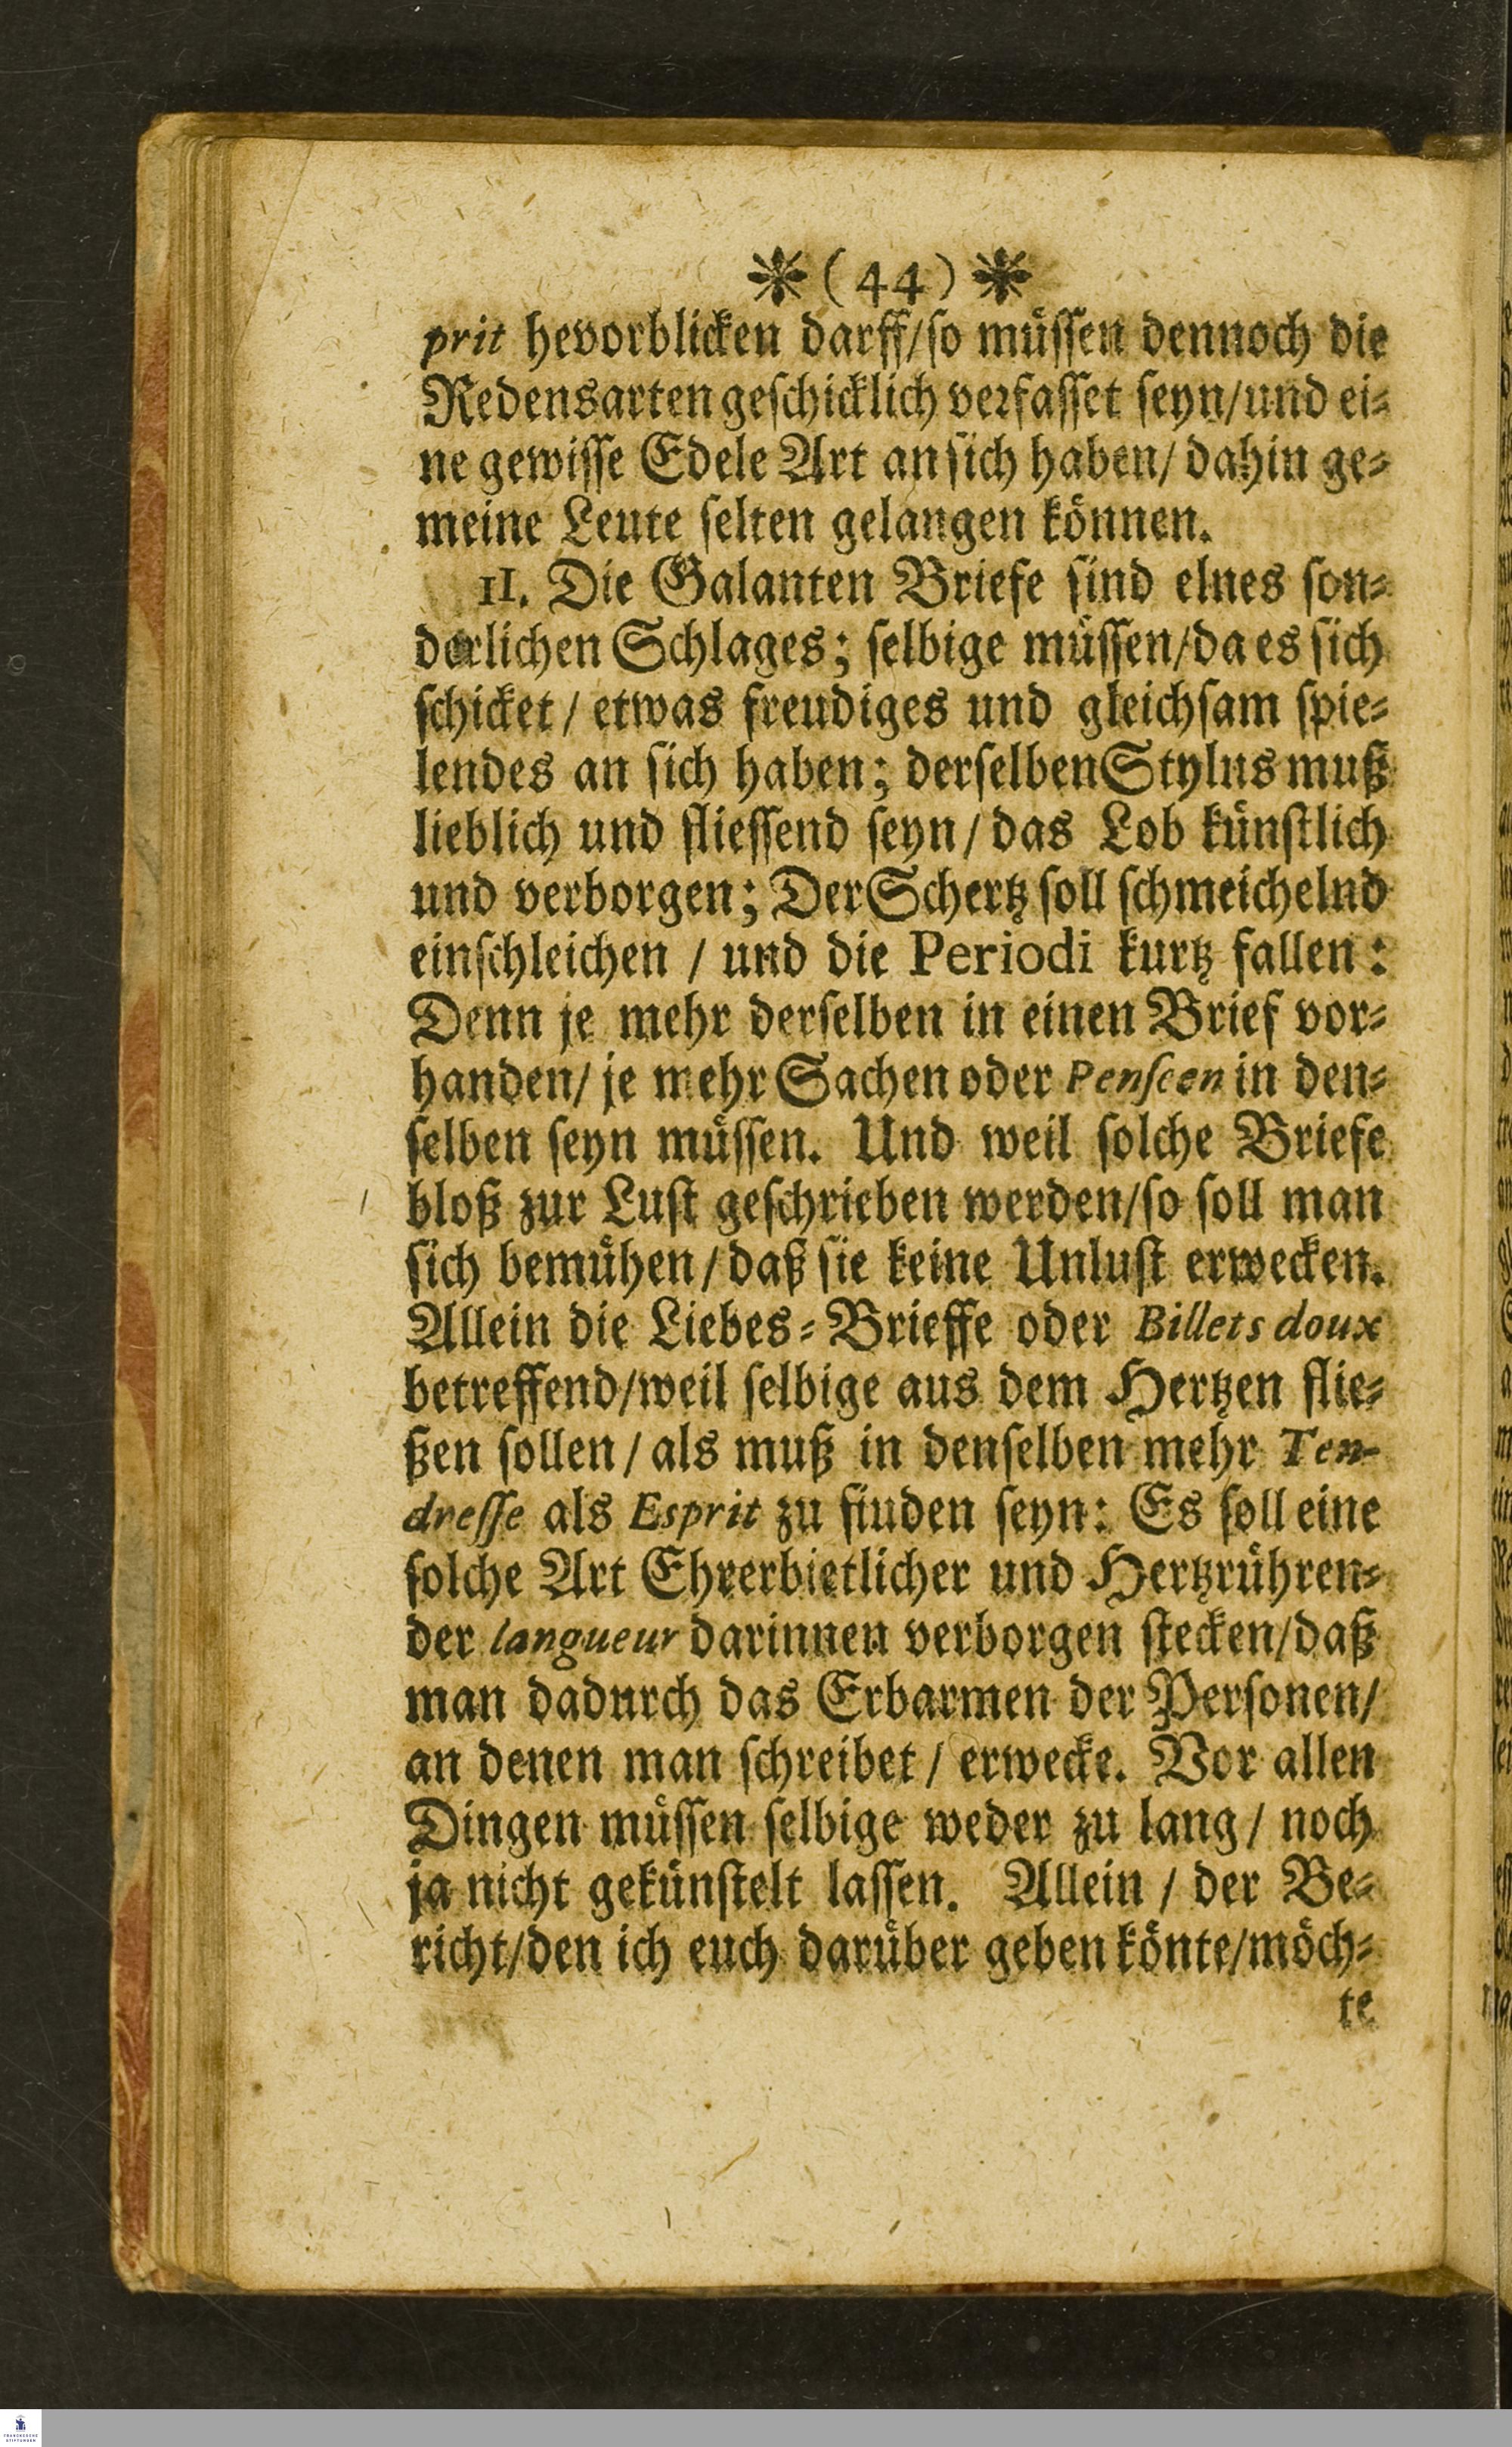 ❋ (44) ❋
prit hevorblicken darff/ſo müſſen dennoch die
Redensarten geſchicklich verfaſſet ſeyn/und ei⸗
ne gewiſſe Edele Art an ſich haben/ dahin ge⸗
meine Leute ſelten gelangen können.
11. Die Galanten Briefe ſind elnes ſon⸗
derlichen Schlages; ſelbige müſſen/da es ſich
ſchicket / etwas freudiges und gleichſam ſpie⸗
lendes an ſich haben; derſelben Stylus muß
lieblich und flieſſend ſeyn / das Lob künſtlich
und verborgen; Der Schertz ſoll ſchmeichelnd
einſchleichen / und die Periodi kurtz fallen :
Denn je mehr derſelben in einen Brief vor⸗
handen/ je mehr Sachen oder Penſeen in den⸗
ſelben ſeyn müſſen. Und weil ſolche Briefe
bloß zur Luſt geſchrieben werden/ſo ſoll man
ſich bemühen / daß ſie keine Unluſt erwecken.
Allein die Liebes⸗Brieffe oder Billets doux
betreffend/weil ſelbige aus dem Hertzen flie⸗
ßen ſollen / als muß in denſelben mehr Ten-
dreſſe als Esprit zu fiuden ſeyn: Es ſoll eine
ſolche Art Ehrerbietlicher und Hertzrühren⸗
der langueur darinnen verborgen ſtecken/daß
man dadurch das Erbarmen der Perſonen/
an denen man ſchreibet / erwecke. Vor allen
Dingen müſſen ſelbige weder zu lang / noch
ja nicht gekünſtelt laſſen. Allein / der Be⸗
richt/den ich euch darüber geben könte/möch⸗
te